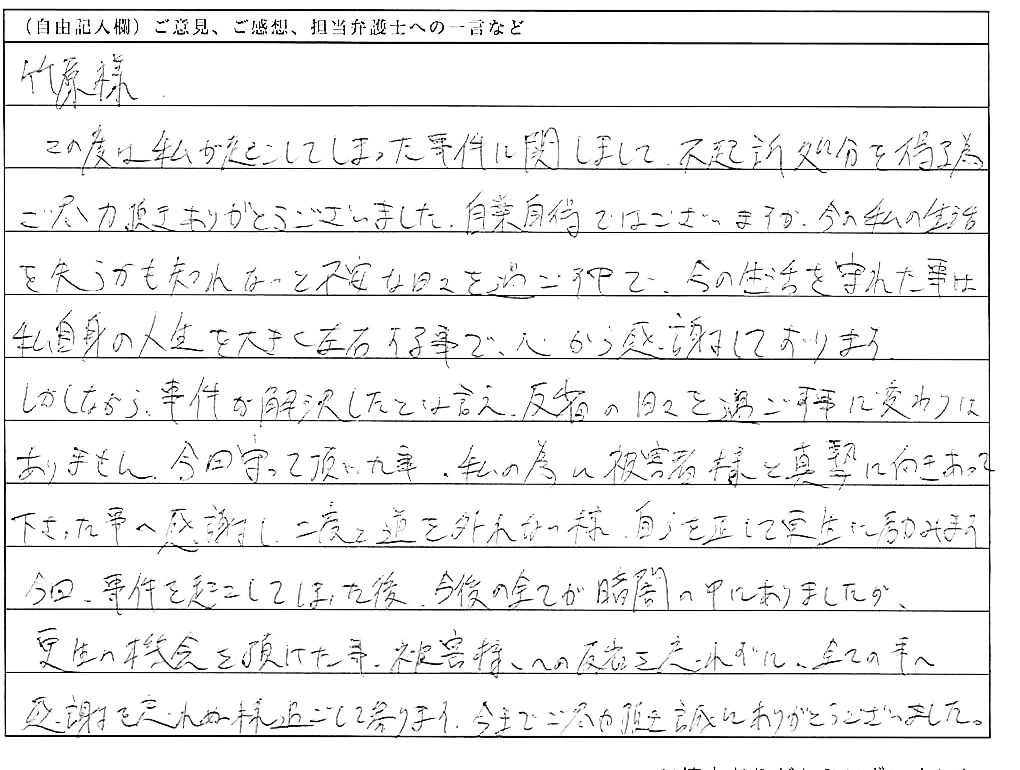 （自由記入欄）ご意見、ご感想、担当弁護士への一言など
竹原様
この度は私が起こしてしまった事件に関しまして、不起訴処分を得る為
ご尽力頂きありがとうございました。自業自得ではございますが、今の私の生活
を失うかも知れないと不安な日々を過ごす中で、今の生活を守れた事は
私自身の人生を大きく左右する事で、心から感謝しております。
しかしながら、事件が解決したとは言え、反省の日々を過ごす事に変わりは
ありません。今回守って頂いた事、私の為に被害者様と真摯に向きあって
下さった事へ感謝し、二度と道を外れない様、自らを正して更生に励みます
今回、事件を起こしてしまった後、今後の全てが暗闇の中にありましたが、
更生の機会を頂けた事、被害様への反省を忘れずに、全ての事へ
感謝を忘れぬ様過ごして参ります。今までご尽力頂き誠にありがとうございました。